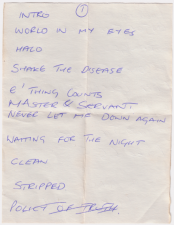 INTRO
1
WORLD IN MY EYES
HALO
SHAKE THE DISEASE
E'THING COUNTS
MASTER & SERVANT
NEVER LET ME DOWN AGAIN
WAITING FOR THE NIGHT
CLEAN
STRIPPED
POLICY OF TRUTH